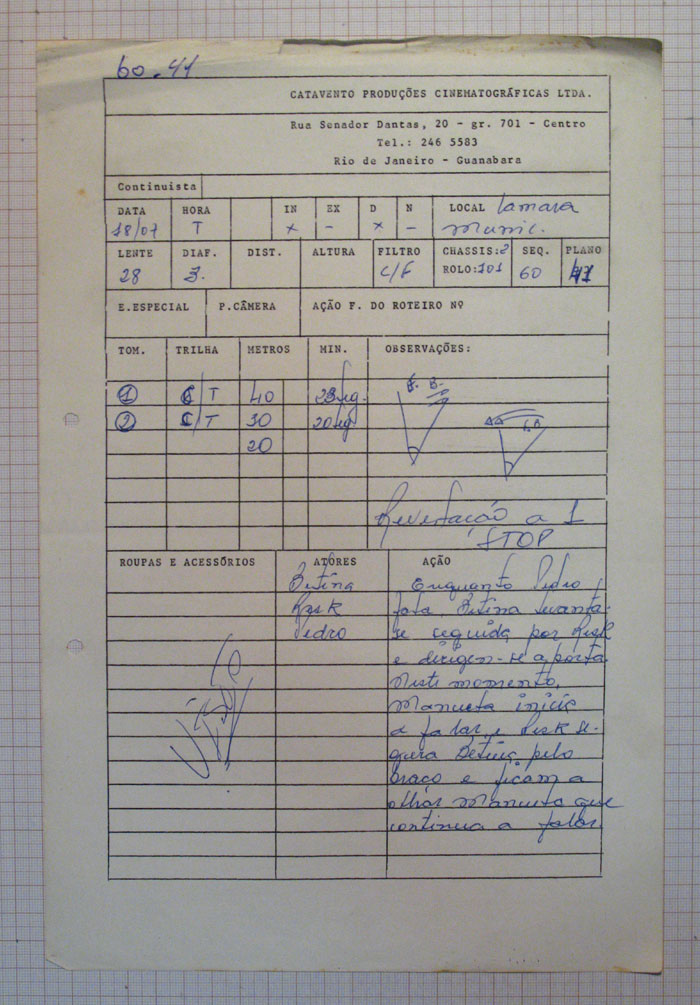 60.41
CATAVENTO PRODUÇÕES CINEMATOGRÁFICAS LTDA.
Rua Senador Dantas, 20 - gr. 701 - Centro
Tel.: 246 5583
Rio de Janeiro - Guanabara
Continuista
DATA HORA IN EX D N LOCAL Camara
18/07 T x - x - Munic.
LENTE DIAF. DIST. ALTURA FILTRO CHASSIS:2 SEQ. PLANO
28 3. C/F ROLO:101 60 41
E.ESPECIAL P.CÂMERA AÇÃO F. DO ROTEIRO Nº
TOM. TRILHA METROS MIN. OBSERVAÇÕES:
1 C/T 40 28seg.
2 C/T 30 20seg
20
a 1
STOP
ROUPAS E ACESSÓRIOS ATORES AÇÃO
Betina Enquanto Pedro
Risk fala, Betina levanta-
Pedro se seguida por Risk
e dirigem-se a porta
Neste momento,
Manueta inicia
a falar e Risk se-
gura Betina pelo
braço e ficam a
olhar Manueta que
continua a falar